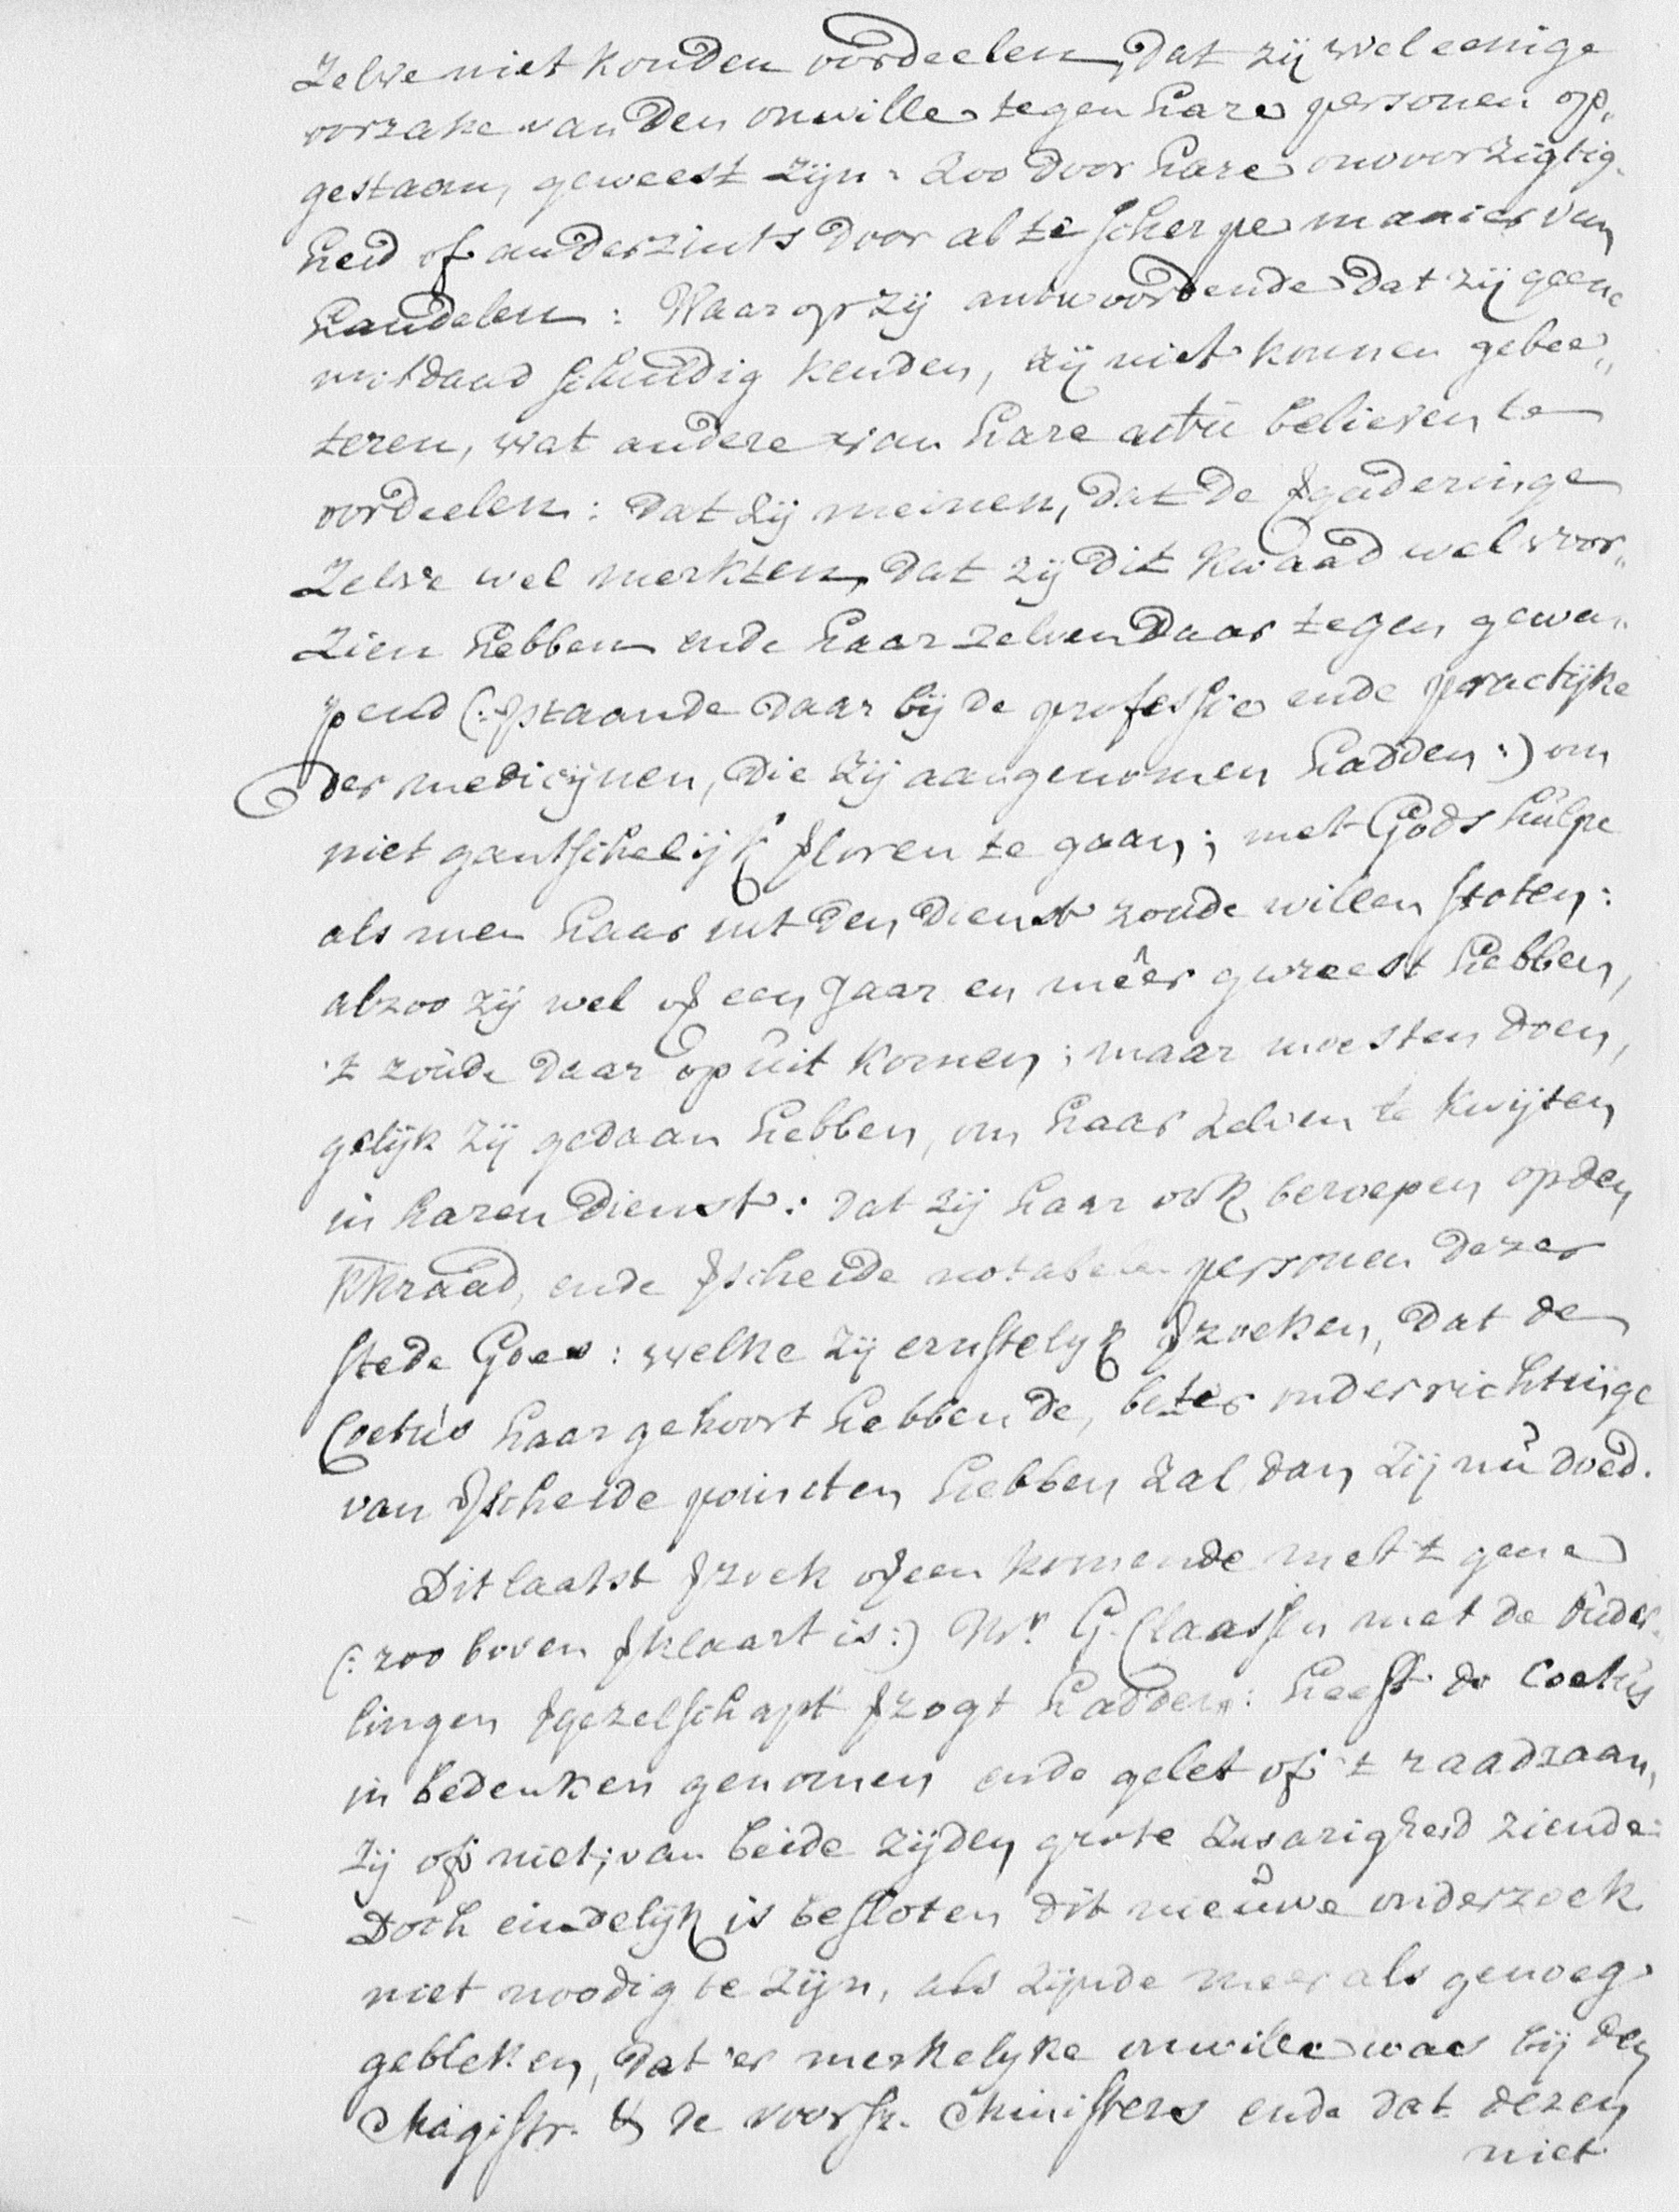 Zelve niet konden oordeelen, dat zij wel eenige
oorzake van den onwille tegen hare personen op„
gestaan, geweest zijn: Zoo door hare onvoorzigtig„
heid of anderzints door al te scherpe manier van
handelen: Waar op zij antwoordende dat zij geene
misdaad schuldig kenden, zij niet konnen gebee„
teren, wat andere van hare actu believen te
oordeelen: dat zij meinen, dat de ꝟgaderinge
Zelve wel merkten, dat zij dit kwaad wel voor„
Zien hebben ende haar zelven daar tegen gewa„
pend (:ꝟstaande daar bij de professie ende practijke
der medicijnen, die zij aangenomen hadden:) om
niet gantschelijk ꝟloren te gaan; met Gods hulpe
als men haar uit den dienst zoude willen stoten:
alzoo zij wel ovꝟ een Jaar en meer gevreest hebben,
't zoude daar op uit komen; maar moesten doen,
gelijk zij gedaan hebben, om haar zelven te kwijten
in haren dienst: dat zij haar ook beroepen op den
KKraad, ende ꝟscheide notabele personen dezer
stede Goes: welke zij ernstelijk ꝟzoeken, dat de
Coetus haar gehoort hebbende, beter onderrichtinge
van ꝟscheide poincten hebben zal, dan zij nu doed.
Dit laatst ꝟzoek ovꝟeen komende met 't gene
(:zoo boven ꝟklaart is:) Mr. G. Claassen met de Ouder„
lingen ꝟgezelschapt ꝟzogt hadden: heeft de Coetus
in bedenken genomen ende gelet of 't raadzaam,
zij of niet; van beide zijden grote zwarigheid ziende:
Doch eindelijk is besloten dit nieuwe onderzoek
niet noodig te zijn, als zijnde meer als genoeg
gebleken, dat 'er merkelyke onwille was bij den
Magistr. & de voorsz. Ministers ende dat dezen
niet